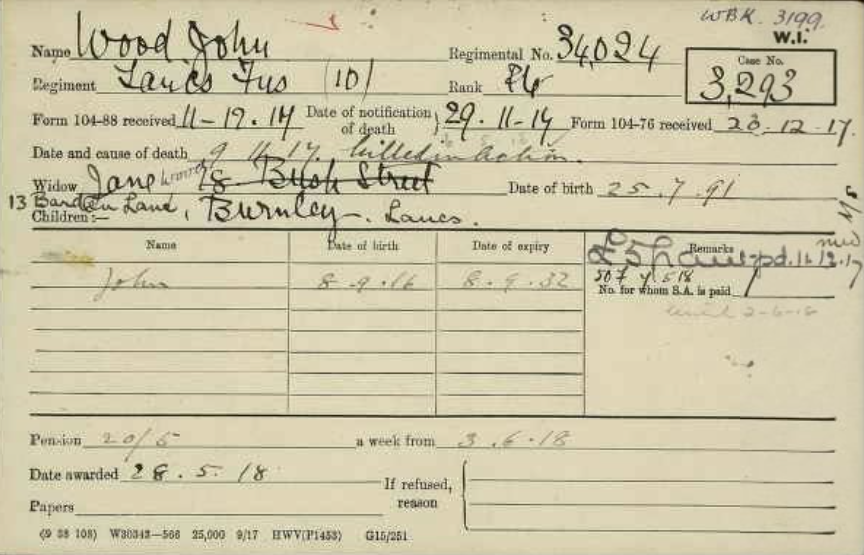 WBK. 3199.
W.I.
Name Wood John Regimental No. 34,024
Case No.
3,293
Regiment Lancs Fus (10) Rank Pte
Form 104-88 received 11-12.17 Date of notification of death } 29.11-17 Form 104-76 received 28.12.17.
Date and cause of death 9 11.17. Killed in Action.
Widow Jane 18 Bush Street Date of birth 25.7.91
13 Barden Lane, Burnley. Lancs.
Children:—
Name Date of birth Date of expiry Remarks
£5 pd. 16/12.17
John 8.9.16 8.9.32
No. for whom S.A. is paid 1
until 2-6-18
Pension 20/5 a week from 3.6.18
Date awarded 28.5.18
If refused, reason
Papers
(9 38 108) W30343—566 25,000 9/17 HWV(P1453) G15/251